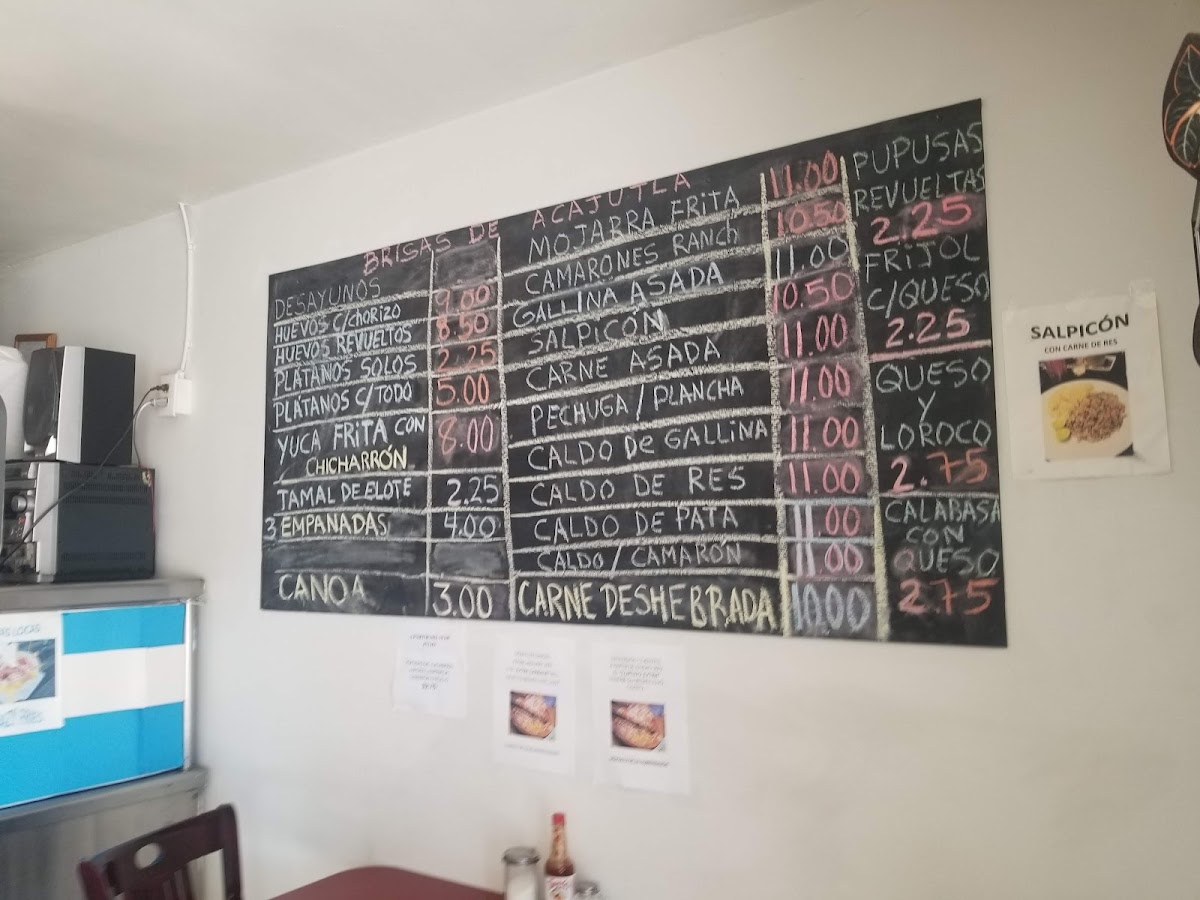 BRISAS DE ACAJUTLA
DESAYUNOS
HUEVOS C/CHORIZO 9.00
HUEVOS REVUELTOS 8.50
PLÁTANOS SOLOS 2.25
PLÁTANOS C/TODO 5.00
YUCA FRITA CON
CHICHARRÓN 8.00
TAMAL DE ELOTE 2.25
3 EMPANADAS 4.00
CANOA 3.00
MOJARRA FRITA 11.00
CAMARONES RANCH 10.50
GALLINA ASADA 11.00
SALPICÓN 10.50
CARNE ASADA 11.00
PECHUGA/PLANCHA 11.00
CALDO DE GALLINA 11.00
CALDO DE RES 11.00
CALDO DE PATA 11.00
CALDO/CAMARÓN 11.00
CARNE DESHEBRADA 10.00
PUPUSAS
REVUELTAS
2.25
FRIJOL
C/QUESO
2.25
QUESO
Y
LOROCO
2.75
CALABASA
CON
QUESO
2.75
SALPICÓN
CON CARNE DE RES
LOCAS